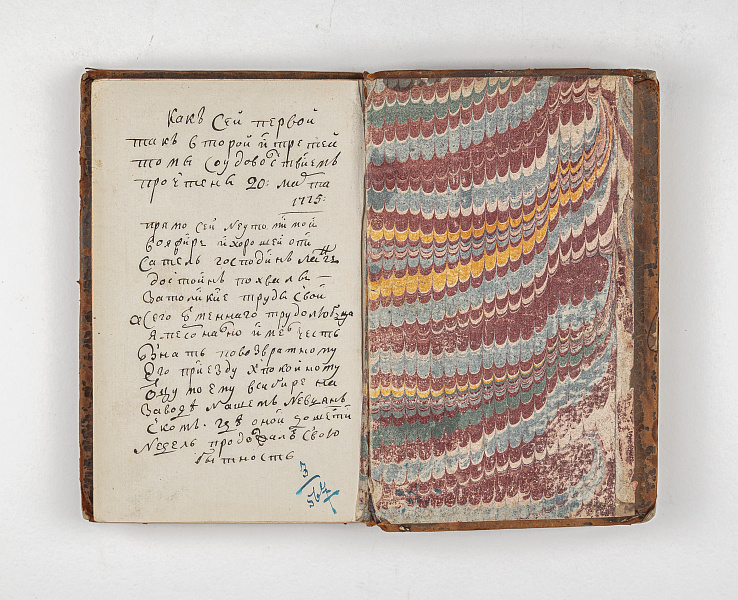 Какъ Сей первой
такъ второй и третей
томы Соудоволствиемъ
прочтены 20: марта
1775:
прямо сей неутомимой
вояжиръ и хорошей опи
сатель господинъ
достоинъ похвалы
Затоликие труды Свои
Сего трудолюбца
я имевъ честь
Знать повозвратному
Его приезду к покойному
Отцу моему всибире на
Заводе нашемъ Невьянъ
Скомъ. где оной
недель продолжалъ Свою
бытность
3/5647